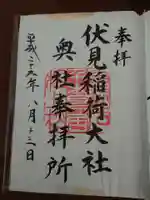 奉拝
伏見稲荷大社
奥社奉拝所
平成二十五年八月十三日